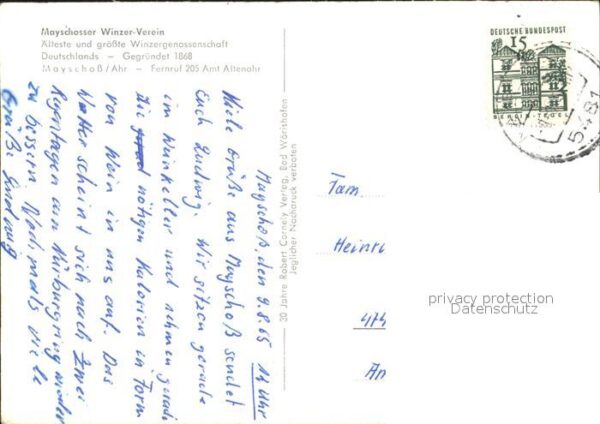 Mayschosser Winzer-Verein
Älteste und größte Winzergenossenschaft
Deutschlands — Gegründet 1868
Mayschoß/Ahr — Fernruf 205 Amt Altenahr
Mayschoß, den 9.8.65 11 Uhr
Viele Grüße aus Mayschoß sendet
Euch Ludwig. Wir sitzen gerade
im Weinkeller und nehmen gerade
die nötigen Kalorien in Form
von Wein in uns auf. Das
Wetter scheint sich nach zwei
Regentagen am Nürburgring wieder
zu bessern. Nochmals viele
Grüße Ludwig
30 Jahre Robert Cornely Verlag, Bad Wörishofen
Jeglicher Nachdruck verboten
DEUTSCHE BUNDESPOST
15
BERLIN-TEGEL
5481
Fam.
Heinri
474
An
privacy protection
Datenschutz